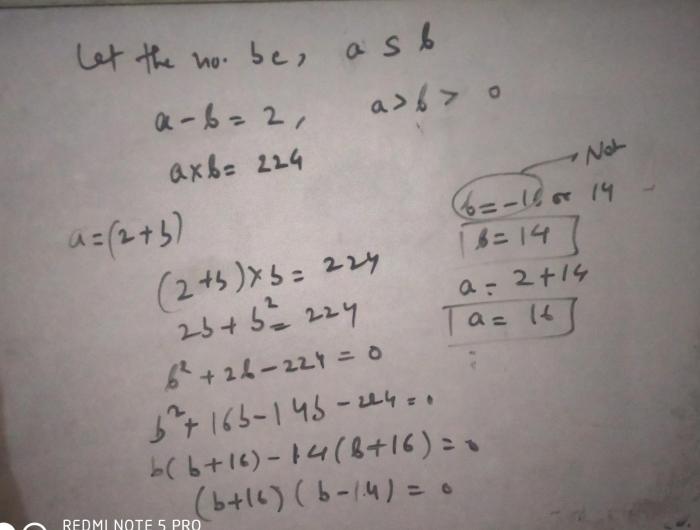 Let the no. be, a & b
a - b = 2, a > b > 0
a×b = 224
a = (2+b)
(2+b)×b = 224
2b + b² = 224
b² + 2b - 224 = 0
b² + 16b - 14b - 224 = 0
b(b+16) - 14(b+16) = 0
(b+16)(b-14) = 0
Not
b = -16 or 14
b = 14
a = 2+14
a = 16
REDMI NOTE 5 PRO